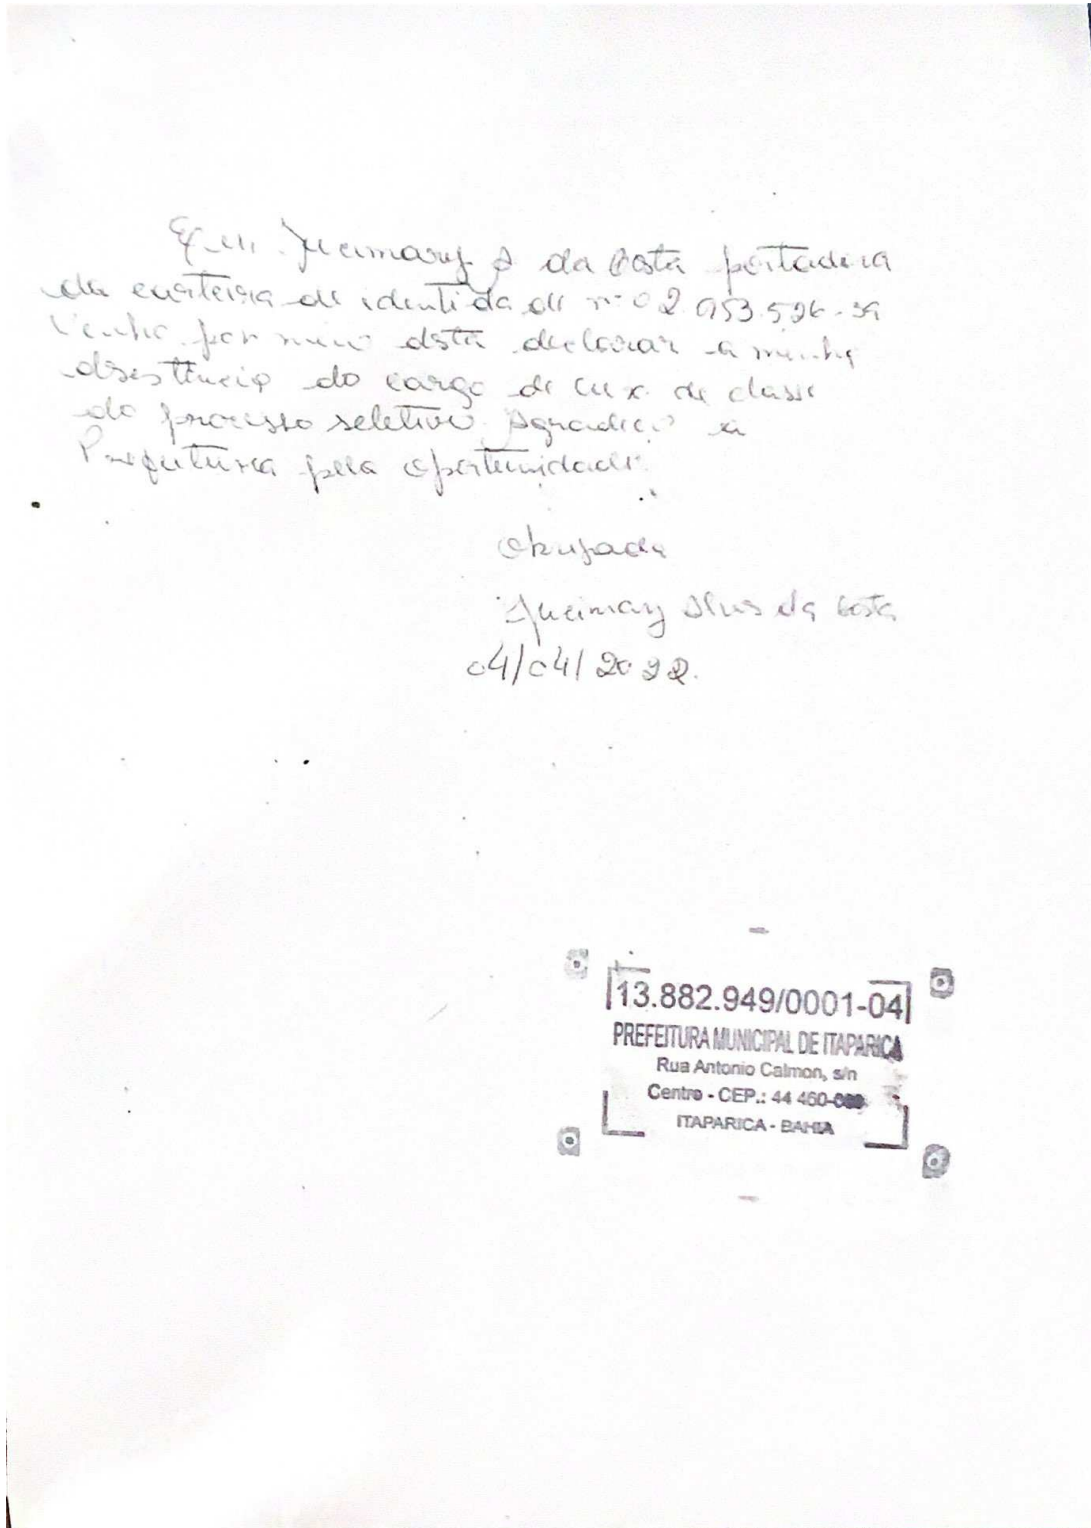 Eu Jucimary A da Costa portadora
da carteira de identidade nº 02.953.526-39
Venho por meio desta declarar a minha
desistência do cargo de aux. de classe
do processo seletivo. Agradeço a
Prefeitura pela oportunidade.
Obrigada
Jucimary Alves da Costa
04/04/2022.
13.882.949/0001-04
PREFEITURA MUNICIPAL DE ITAPARICA
Rua Antonio Calmon, s/n
Centro - CEP.: 44 460-000
ITAPARICA - BAHIA